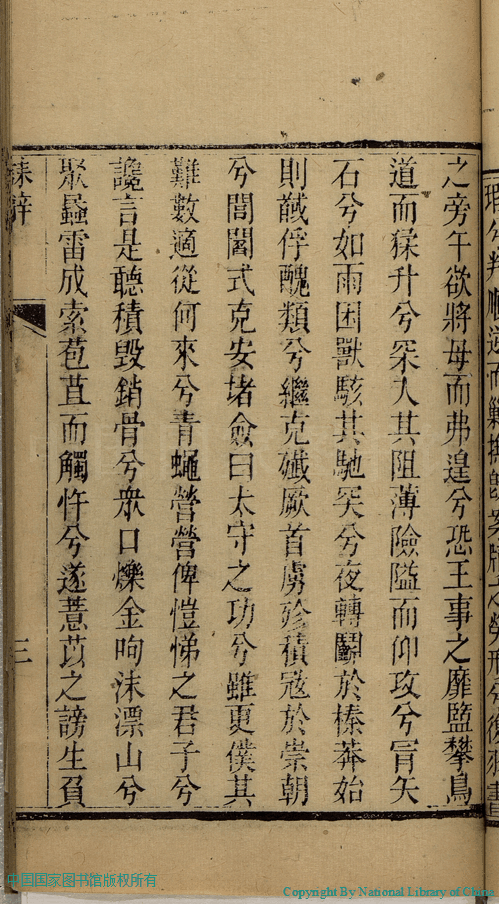 之旁午欲將母而弗遑兮恐王事之靡盬攀鳥
道而猱升兮罙入其阻薄險隘而仰攻兮冐矢
石兮如雨困獸駭其馳突兮夜轉鬭於榛莽始
則馘俘醜類兮繼克殱厥首虜殄積宼於崇朝
兮閭閻式克安堵僉曰太守之功兮雖更僕其
難數適從何來兮青蠅營營俾愷悌之君子兮
讒言是聽積毀銷骨兮衆口爍金呴沬漂山兮
聚蟁雷成索苞苴而觸忤兮遂薏苡之謗生負
誄辭
三
中国国家图书馆版权所有
Copyright By National Library of China